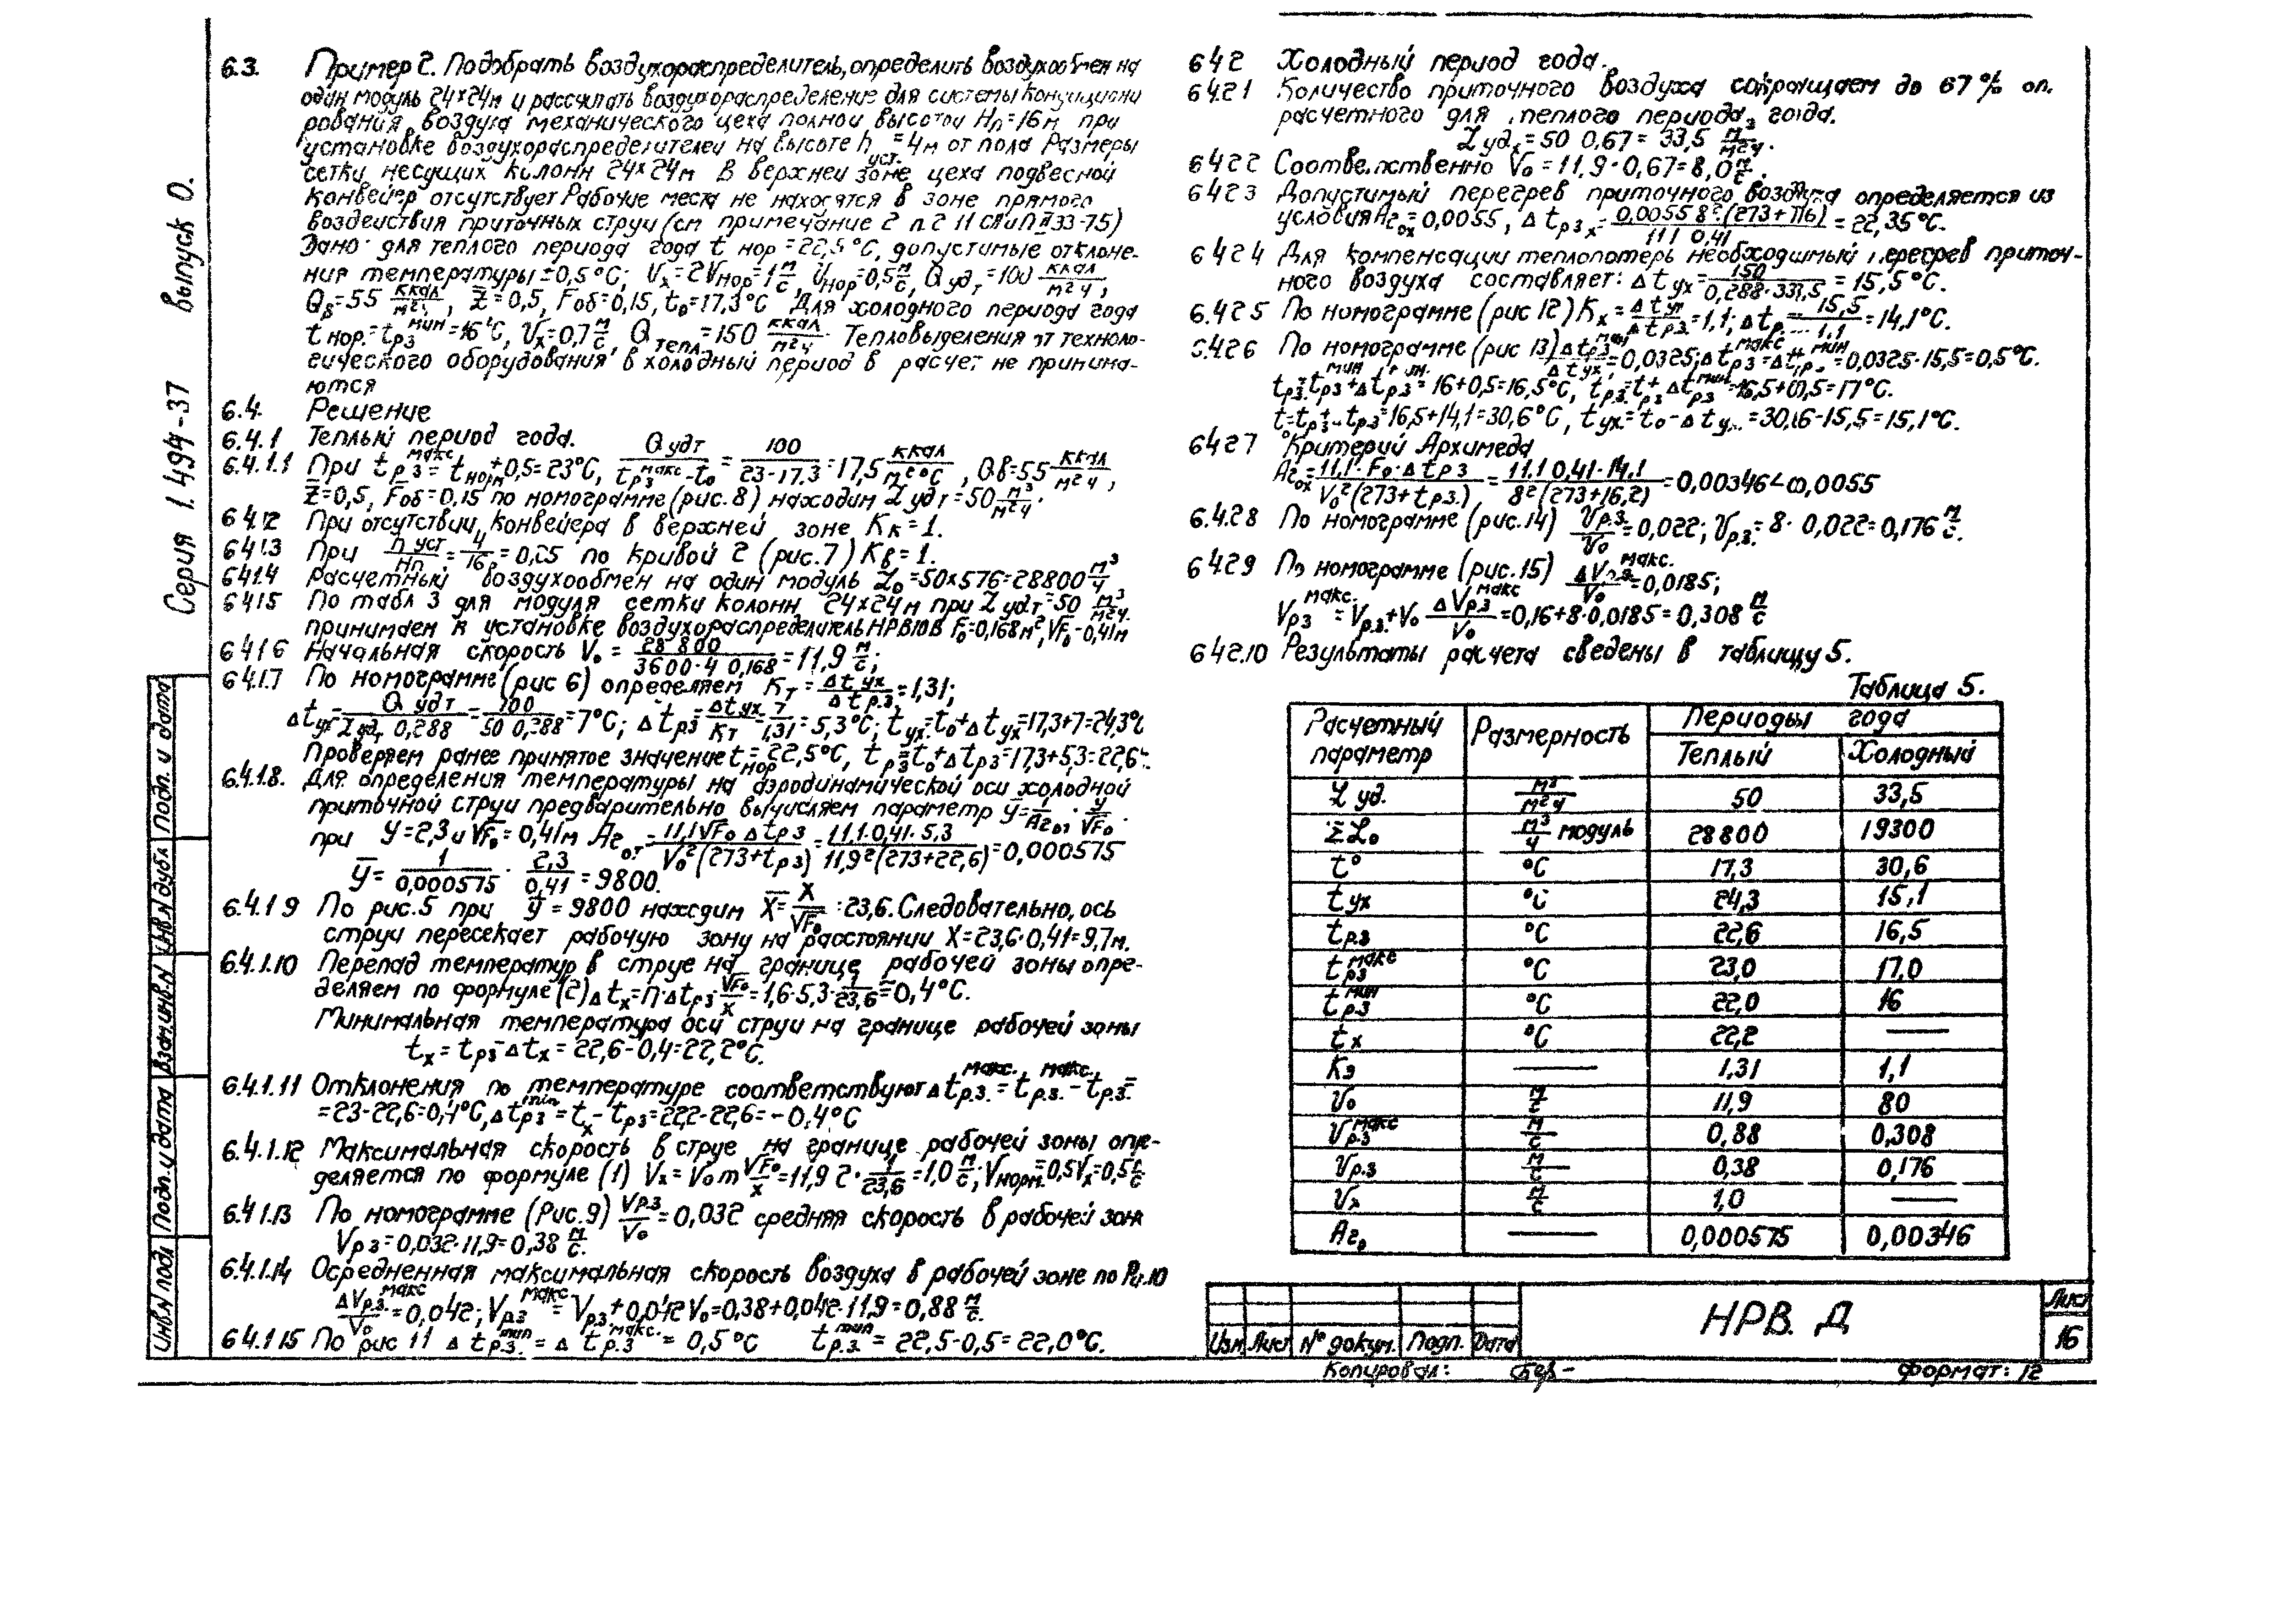 Серия 1.494-37 Выпуск 0.
6.3. Пример 2. Подобрать воздухораспределитель, определить воздухообмен на
один модуль 24×24м и рассчитать воздухораспределение для системы кондициони
рования воздуха механического цеха полной высотой Hп=16м при
установке воздухораспределителей на высоте h уст. =4м от пола Размеры
сетки несущих колонн 24×24м В верхней зоне цеха подвесной
конвейер отсутствует Рабочие места не находятся в зоне прямого
воздействия приточных струй (см примечание 2 п.2 11 СНиП II 33-75)
Дано: для теплого периода года t нор =22,5°С, допустимые отклоне-
ния температуры ±0,5°С; Vx=2Vнор=1 м/с, Vнор=0,5 м/с, Q удт =100 ккал/м²ч,
Qв=55 ккал/м²ч, z̄=0,5, Fоб=0,15, t₀=17,3°С Для холодного периода года
t нор.=tрз мин=16°С, Vx=0,7 м/с, Q тепл=150 ккал/м²ч Тепловыделения от техноло-
гического оборудования в холодный период в расчет не принима-
ются
6.4. Решение
6.4.1 Теплый период года.
6.4.1.1 При tр.з макс= tнорм+0,5=23°С, Q удт/(tрз макс-t₀) = 100/(23-17.3) =17,5 ккал/м²ч°С, Qв=55 ккал/м²ч,
z̄=0,5, F̄об=0,15 по номограмме (рис.8) находим L удт=50 м³/м²ч.
6.4.1.2 При отсутствии конвейера в верхней зоне Kк=1.
6.4.1.3 При h уст/Hп = 4/16 = 0,25 по кривой 2 (рис.7) Kв=1.
6.4.1.4 Расчетный воздухообмен на один модуль L₀=50×576=28800 м³/ч
6.4.1.5 По табл 3 для модуля сетки колонн 24×24м при L удт=50 м³/м²ч.
принимаем к установке воздухораспределитель НРВ10В F₀=0,168м², √F₀=0,41м
6.4.1.6 Начальная скорость V₀ = 28 800/(3600·4 0,168) =11,9 м/с;
6.4.1.7 По номограмме (рис 6) определяем Kт = Δt ух/Δtр.з. =1,31;
Δtух= Q удт/(L удт 0,288) = 100/(50 0,288) =7°С; Δtрз= Δtух/Kт = 7/1,31 =5,3°С; tух=t₀+Δtух=17,3+7=24,3°С
Проверяем ранее принятое значение tнор=22,5°С, tрз=t₀+Δtрз=17,3+5,3=22,6°.
6.4.1.8. Для определения температуры на аэродинамической оси холодной
приточной струи предварительно вычисляем параметр ȳ= 1/Aг₀т · y/√F₀.
при y=2,3 и √F₀=0,41м Aг₀т= 11,1√F₀ Δtрз/(V₀²(273+tрз)) = 11.1·0,41·5,3/(11,9²(273+22,6)) =0,000575
ȳ= 1/0,000575 · 2,3/0,41 =9800.
6.4.1.9 По рис.5 при ȳ=9800 находим x̄= x/√F₀ =23,6. Следовательно, ось
струи пересекает рабочую зону на расстоянии X=23,6·0,41=9,7м.
6.4.1.10 Перепад температур в струе на границе рабочей зоны опре-
деляем по формуле (2) Δtx=n·Δtрз· √F₀/x =1,6·5,3· 1/23,6 =0,4°С.
Минимальная температура оси струи на границе рабочей зоны
tx = tрз-Δtx = 22,6-0,4=22,2°С.
6.4.1.11 Отклонения по температуре соответствуют Δtр.з. макс.= tр.з. макс.- tр.з.=
=23-22,6=0,4°С, Δtрз min=tx- tрз=22,2-22,6=-0,4°С
6.4.1.12 Максимальная скорость в струе на границе рабочей зоны опре-
деляется по формуле (1) Vx=V₀m √F₀/x =11,9 2· 1/23,6 =1,0 м/с, Vнорм=0,5Vx=0,5 м/с
6.4.1.13 По номограмме (Рис.9) Vр.з/V₀ =0,032 средняя скорость в рабочей зоне
Vрз=0,032·11,9=0,38 м/с.
6.4.1.14 Осредненная максимальная скорость воздуха в рабочей зоне по Рис.10
ΔVр.з. макс/V₀ =0,042; Vрз макс= Vрз+0,042V₀=0,38+0,042·11,9=0,88 м/с.
6.4.1.15 По рис 11 Δtр.з. min = Δtр.з макс. = 0,5°С tр.з. min= 22,5-0,5=22,0°С.
6.4.2 Холодный период года.
6.4.2.1 Количество приточного воздуха сокращаем до 67% от.
расчетного для теплого периода года.
L удх=50 0,67= 33,5 м³/м²ч.
6.4.2.2 Соответственно V₀ =11,9·0,67=8,0 м/с.
6.4.2.3 Допустимый перегрев приточного воздуха определяется из
условия Aг₀х=0,0055, Δtрзх= 0,0055 8²·(273+16)/(11.1 0,41) =22,35°С.
6.4.2.4 Для компенсации теплопотерь необходимый перегрев приточ-
ного воздуха составляет: Δtух= 150/(0,288·33,5) =15,5°С.
6.4.2.5 По номограмме (рис 12) Kх= Δtух/Δtрз. =1,1; Δtр...= 15,5/1,1 =14,1°С.
6.4.2.6 По номограмме (рис 13) Δtрз мин/Δtух =0,0325; Δtрз макс=Δtрз мин=0,0325·15,5=0,5°С.
tрз=tрз мин+Δtрз мин=16+0,5=16,5°С, tр.з. макс=tрз+Δtрз макс=16,5+0,5=17°С.
t₀=tрз+Δtрз=16,5+14,1=30,6°С, tух=t₀-Δtух=30,6-15,5=15,1°С.
6.4.2.7 Критерий Архимеда
Aг₀х= 11,1·F₀·Δtрз/(V₀²(273+tрз.)) = 11.1 0,41·14.1/(8²(273+16,2)) =0,00346<0,0055
6.4.2.8 По номограмме (рис.14) Vр.з./V₀ =0,022; Vр.з.=8·0,022=0,176 м/с.
6.4.2.9 По номограмме (рис.15) ΔVрз макс./V₀ =0,0185;
Vрз макс.=Vр.з.+V₀ ΔVр.з макс/V₀ =0,16+8·0,0185=0,308 м/с
6.4.2.10 Результаты расчета сведены в таблицу 5.
Таблица 5.
Расчетный параметр Размерность Периоды года
Теплый Холодный
L уд. м³/м²ч 50 33,5
ΣL₀ м³/ч модуль 28800 19300
t° °С 17,3 30,6
tух °С 24,3 15,1
tр.з °С 22,6 16,5
tрз макс °С 23,0 17,0
tр.з мин °С 22,0 16
tх °С 22,2 —
Kэ — 1,31 1,1
V₀ м/с 11,9 80
Vр.з макс м/с 0,88 0,308
Vр.з м/с 0,38 0,176
Vх м/с 1,0 —
Aг₀ — 0,000575 0,00346
Инв.N подл Подп. и дата Взам.инв.N Инв.N дубл Подп. и дата
Изм Лист № докум. Подп. Дата
НРВ. Д
Лист
16
Копировал:
Формат: 12